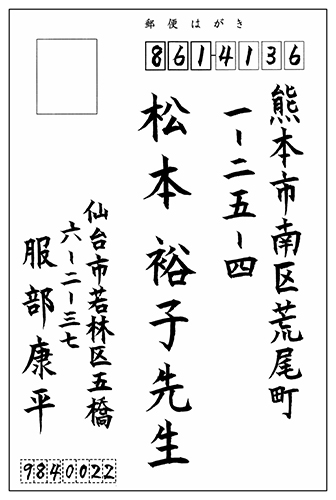 郵便はがき
861-4136
熊本市南区荒尾町
一ー二五ー四
松本裕子先生
仙台市若林区五橋
六ー二ー三七
服部康平
9840022